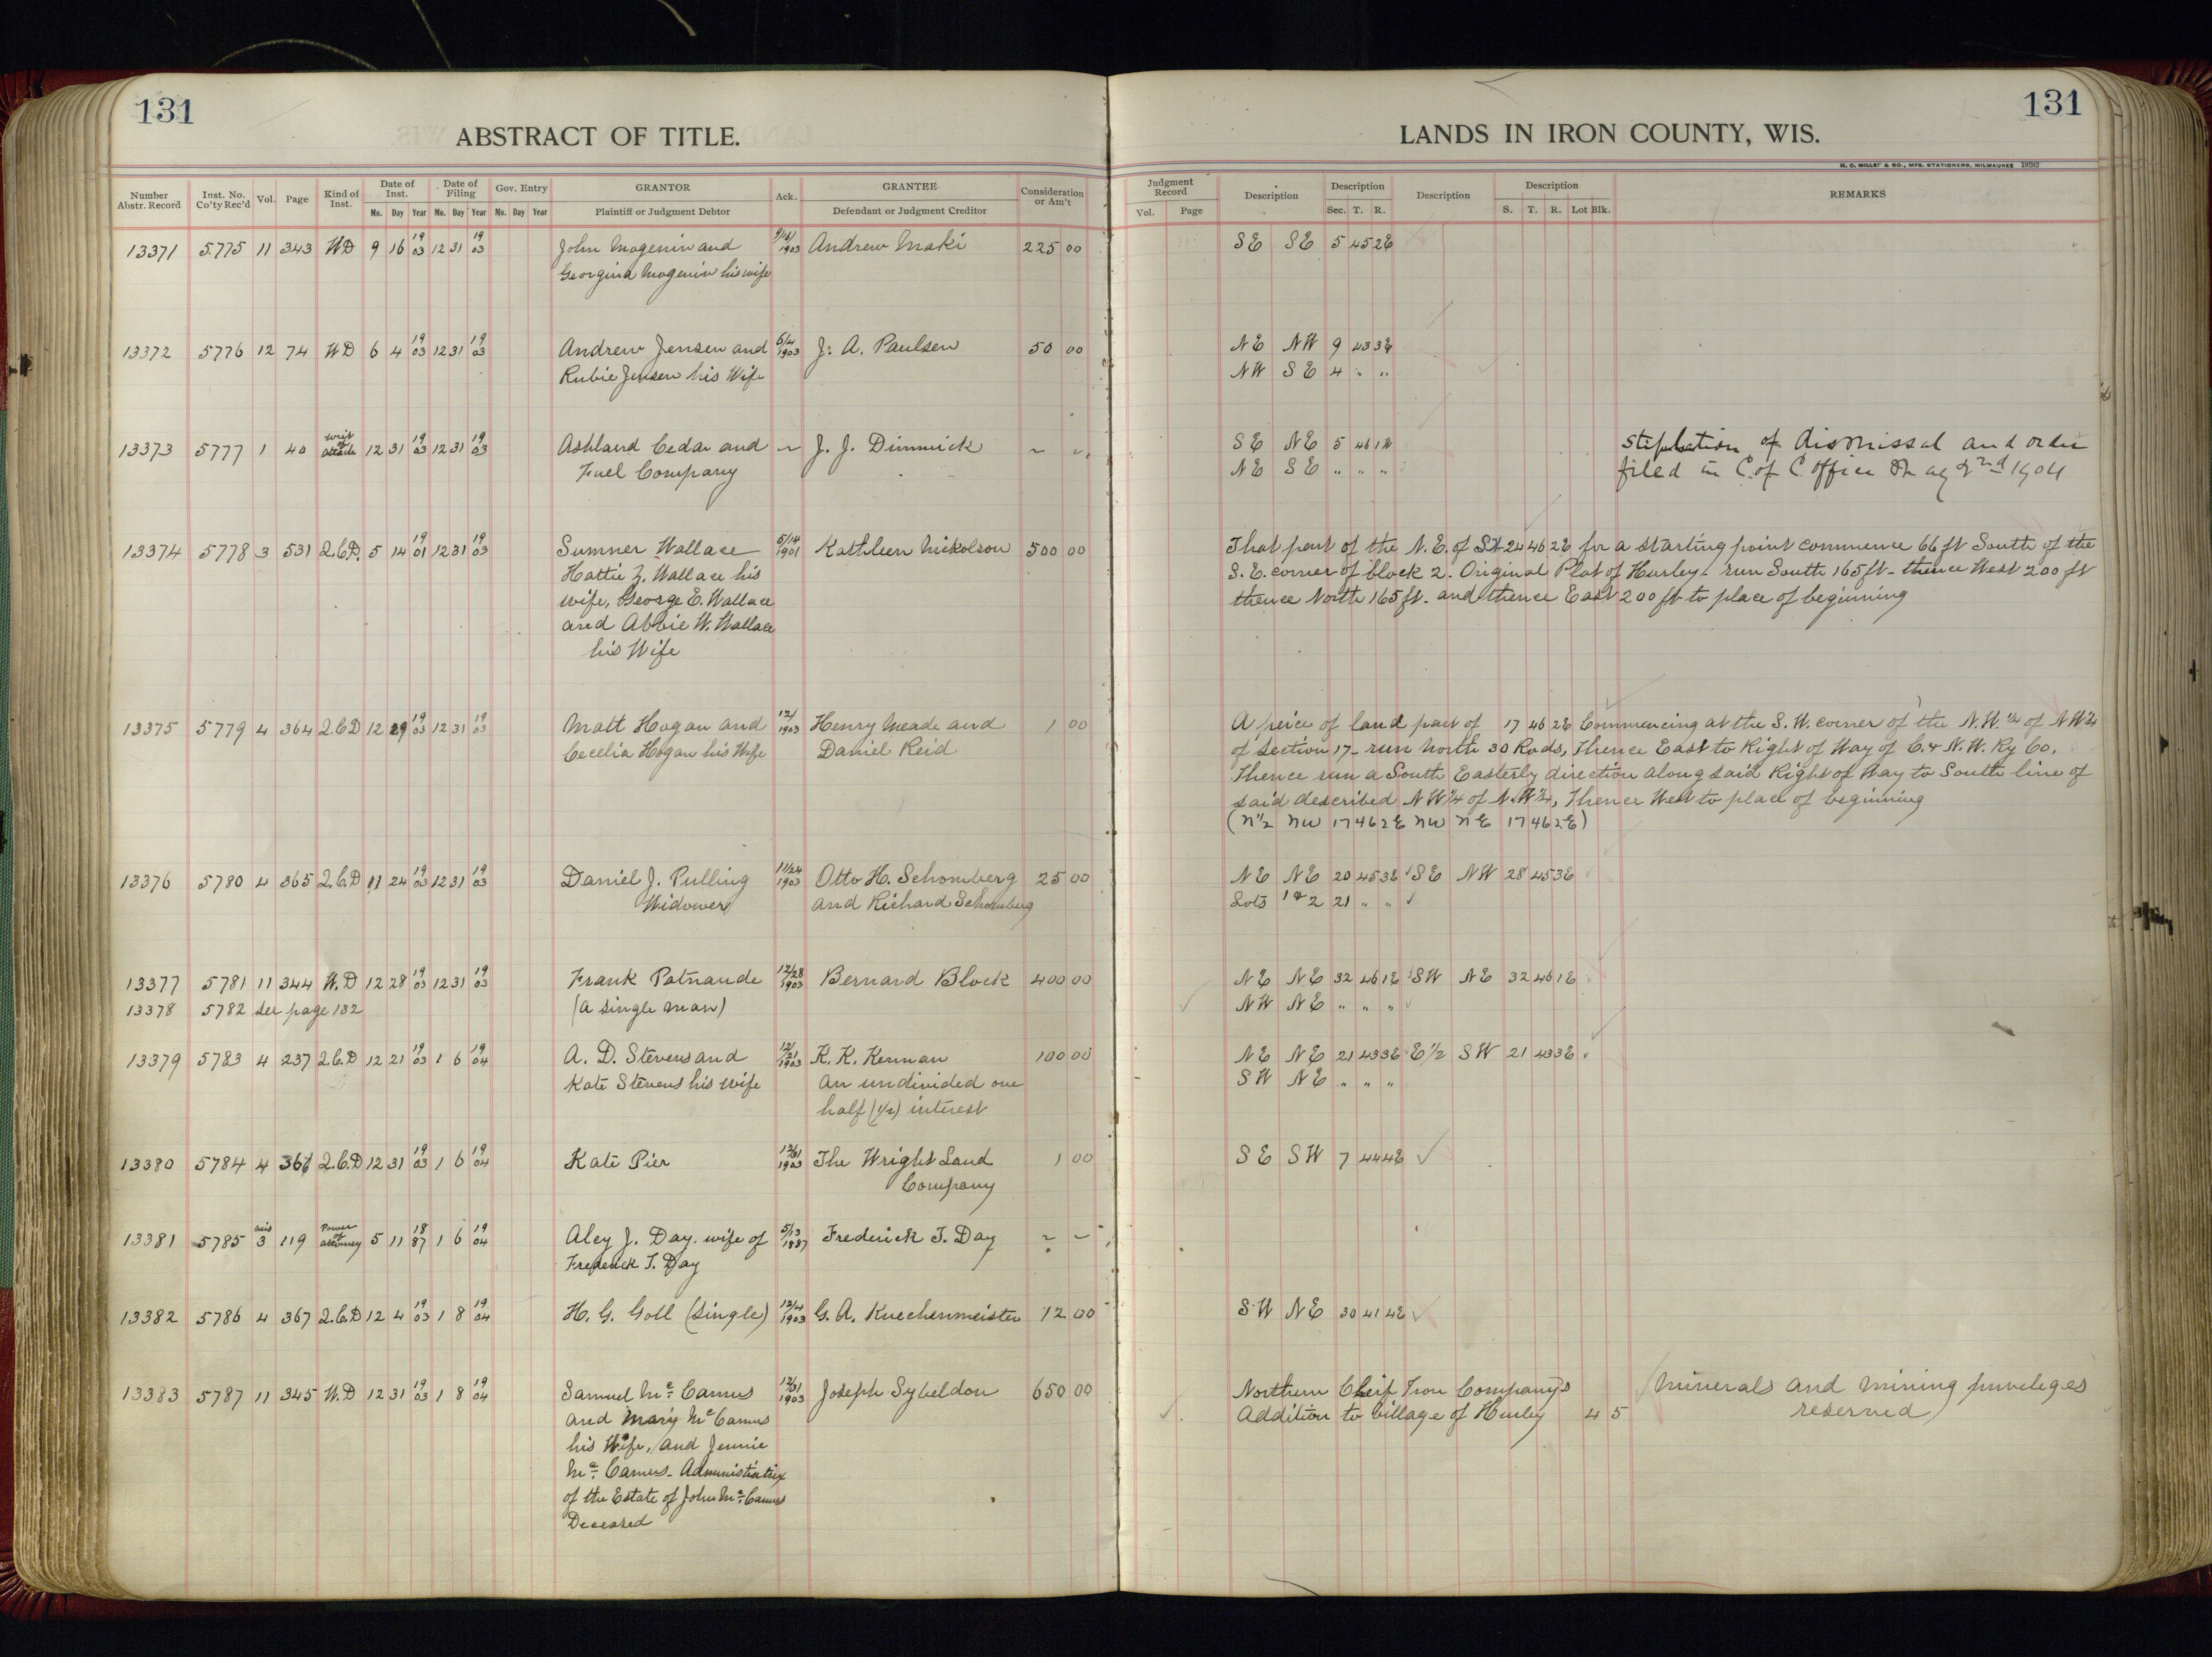 131
ABSTRACT OF TITLE.
Number Abstr. Record | Inst. No. Co'ty Rec'd | Vol. | Page | Kind of Inst. | Date of Inst. Mo. Day Year | Date of Filing Mo. Day Year | Gov. Entry Mo. Day Year | GRANTOR Plaintiff or Judgment Debtor | Ack. | GRANTEE Defendant or Judgment Creditor | Consideration or Am't
13371 5775 11 343 WD 9 16 19 03 12 31 19 03 John Mogenin and 9/16/1903 Andrew Maki 225 00
Georgina Mogenin his wife
13372 5776 12 74 WD 6 4 19 03 12 31 19 03 Andrew Jensen and 6/4 1903 J. A. Paulsen 50 00
Rubie Jensen his Wife
13373 5777 1 40 Writ of 12 31 19 03 12 31 19 03 Ashland Cedar and ~ J. J. Dimmick ~ ~
Fuel Company
13374 5778 3 531 Q.C.D. 5 14 19 01 12 31 19 03 Sumner Wallace 5/14 1901 Kathleen Nickolson 500 00
Hattie Z. Wallace his
wife, George E. Wallace
and Abbie W. Wallace
his Wife
13375 5779 4 364 Q.C.D 12 29 19 03 12 31 19 03 Matt Hogan and 12/ 1903 Henry Meade and 1 00
Cecelia Hogan his Wife Daniel Reid
13376 5780 4 365 Q.C.D 11 24 19 03 12 31 19 03 Daniel J. Pulling 11/24 1903 Otto H. Schomberg 25 00
Widower and Richard Schomberg
13377 5781 11 344 W.D 12 28 19 03 12 31 19 03 Frank Patnaude 12/28 1903 Bernard Block 400 00
13378 5782 see page 132 (a single man)
13379 5783 4 237 Q.C.D 12 21 19 03 1 6 19 04 A. D. Stevens and 12/21 1903 K. K. Kennan 100 00
Kate Stevens his wife an undivided one
half (1/2) interest
13380 5784 4 366 Q.C.D 12 31 19 03 1 6 19 04 Kate Pier 12/31 1903 The Wright Land 1 00
Company
13381 5785 mis 3 119 Power of attorney 5 11 18 87 1 6 19 04 Aley J. Day. wife of 5/13 1887 Frederick T. Day ~ ~
Frederick T. Day
13382 5786 4 367 Q.C.D 12 4 19 03 1 8 19 04 H. G. Goll (single) 12/4 1903 G. A. Kuechenmeister 12 00
13383 5787 11 345 W.D 12 31 19 03 1 8 19 04 Samuel Mc Camus 12/31 1903 Joseph Sybeldon 650 00
and Mary Mc Camus
his Wife, and Jennie
Mc Camus. Administratrix
of the Estate of John Mc Camus
Deceased
131
LANDS IN IRON COUNTY, WIS.
H. C. MILLER & CO., MFG. STATIONERS, MILWAUKEE 19282
Judgment Record Vol. Page | Description | Description Sec. T. R. | Description | Description S. T. R. Lot Blk. | REMARKS
SE SE 5 45 2E
NE NW 9 43 3E
NW SE 4 " "
SE NE 5 46 1W Stiplation of dismissal and order
NE SE " " " filed in C. of C office 2nd 1904
That part of the N.E. of 24 46 2E for a starting point commence 66 ft South of the
S.E. corner of block 2. Original Plat of Hurley - run South 165 ft - thence West 200 ft
thence North 165 ft. and thence East 200 ft to place of beginning
A peice of land part of 17 46 2E Commencing at the S.W. corner of the N.W. 1/4 of NW 1/4
of Section 17 - run North 30 Rods, Thence East to Right of Way of C. & N.W. Ry Co.
Thence run a South Easterly direction along said Right of Way to South line of
said described NW 1/4 of N.W 1/4, Thence West to place of beginning
(N 1/2 NW 17 46 2E NW NE 17 46 2E)
NE NE 20 45 3E SE NW 28 45 3E
Lots 1 & 2 21 " "
NE NE 32 46 1E SW NE 32 46 1E
NW NE " " "
NE NE 21 43 3E E 1/2 SW 21 43 3E
SW NE " " "
SE SW 7 44 4E
SW NE 30 41 4E
Northern Cheif Iron Company's Minerals and mining privileges
Addition to Village of Hurley 4 5 reserved